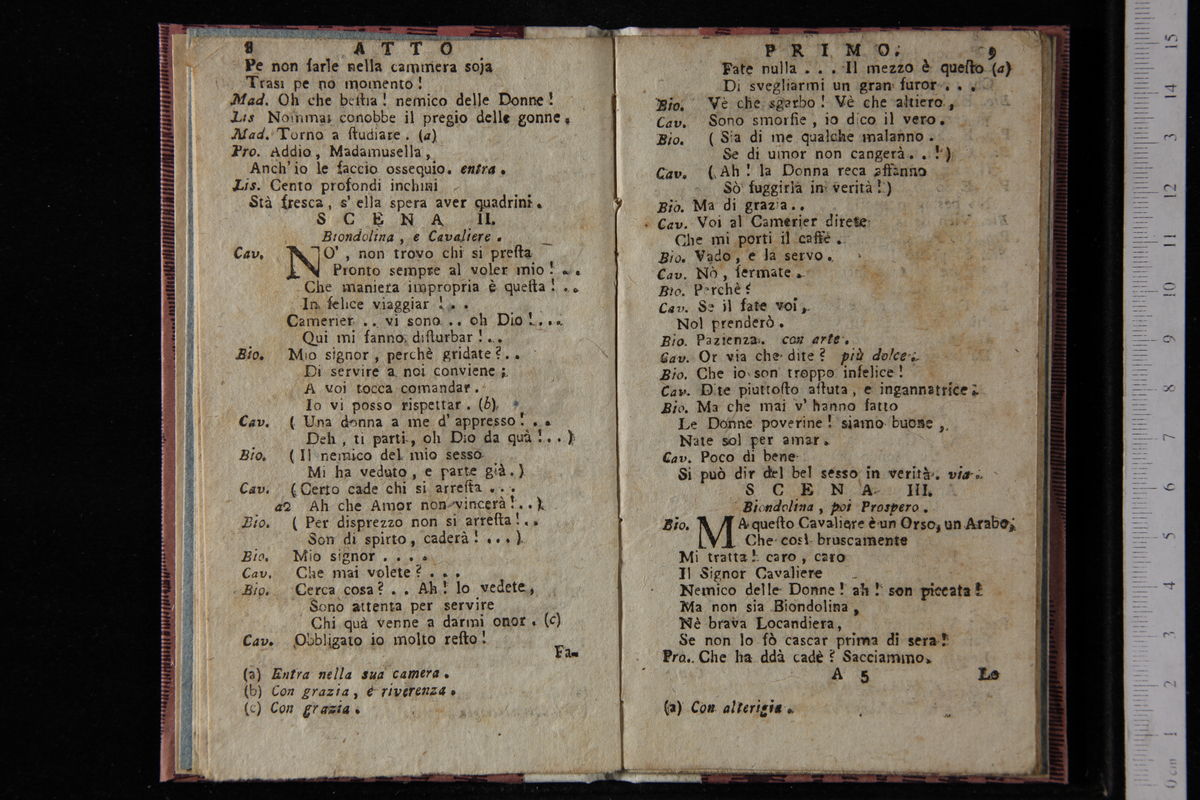 8 ATTO
Pe non farle nella cammera soja
Trasi pe no momento!
Mad. Oh che bestia! nemico delle Donne!
Lis Nommai conobbe il pregio delle gonne.
Mad. Torno a studiare. (a)
Pro. Addio, Madamusella,
Anch'io le faccio ossequio. entra.
Lis. Cento profondi inchini
Stà fresca, s'ella spera aver quadrini.
SCENA II.
Biondolina, e Cavaliere.
Cav. NO', non trovo chi si presta
Pronto sempre al voler mio! ..
Che maniera impropria è questa! ..
In felice viaggiar! ..
Camerier .. vi sono .. oh Dio! ...
Qui mi fanno disturbar! ..
Bio. Mio signor, perchè gridate? ..
Di servire a noi conviene;
A voi tocca comandar.
Io vi posso rispettar. (b)
Cav. (Una donna a me d'appresso! ..
Deh, ti parti, oh Dio da quà! ..)
Bio. (Il nemico del mio sesso
Mi ha veduto, e parte già.)
Cav. (Certo cade chi si arresta ...
a2 Ah che Amor non vincerà! ..)
Bio. (Per disprezzo non si arresta! ..
Son di spirto, caderà! ...)
Bio. Mio signor ....
Cav. Che mai volete? ...
Bio. Cerca cosa? .. Ah! lo vedete,
Sono attenta per servire
Chi quà venne a darmi onor. (c)
Cav. Obbligato io molto resto!
Fa-
(a) Entra nella sua camera.
(b) Con grazia, e riverenza.
(c) Con grazia.
PRIMO. 9
Fate nulla ... Il mezzo è questo (a)
Di svegliarmi un gran furor ...
Bio. Vè che sgarbo! Vè che altiero,
Cav. Sono smorfie, io dico il vero.
Bio. (Sia di me qualche malanno.
Se di umor non cangerà..!)
Cav. (Ah! la Donna reca affanno
Sò fuggirla in verità!)
Bio. Ma di grazia..
Cav. Voi al Camerier direte
Che mi porti il caffè.
Bio. Vado, e la servo.
Cav. Nò, fermate.
Bio. Perchè?
Cav. Se il fate voi,
Nol prenderò.
Bio. Pazienza. con arte.
Cav. Or via che dite? più dolce.
Bio. Che io son troppo infelice!
Cav. Dite piuttosto astuta, e ingannatrice.
Bio. Ma che mai v'hanno fatto
Le Donne poverine! siamo buone,
Nate sol per amar.
Cav. Poco di bene
Si può dir del bel sesso in verità. via.
SCENA III.
Biondolina, poi Prospero.
Bio. MA questo Cavaliere è un Orso, un Arabo,
Che così bruscamente
Mi tratta! caro, caro
Il Signor Cavaliere
Nemico delle Donne! ah! son piccata!
Ma non sia Biondolina,
Nè brava Locandiera,
Se non lo fò cascar prima di sera!
Pro. Che ha ddà cadè? Sacciammo.
A 5 Lo
(a) Con alterigia.
0 cm 1 2 3 4 5 6 7 8 9 10 11 12 13 14 15